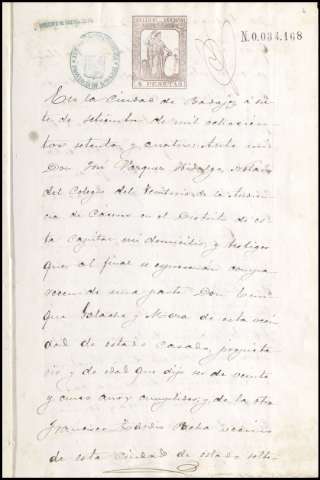 N.0.034.168
5 PESETAS
En la ciudad de Badajoz a sie-
te de setiembre de mil ochocien-
tos setenta y cuatro Ante mi
Don José Vazquez Hidalgo Notario
del Colegio del Territorio de la Audien-
cia de Cáceres en el Distrito de es-
ta capital, mi domicilio, y testigos
que al final se espresarán compa-
recen de una parte Don
que y de esta vecin-
dad de estado casado, propieta-
rio y de edad que dijo ser de veinte
y cinco años cumplidos, y de la otra
Francisco vecino
de esta ciudad de estado solte-